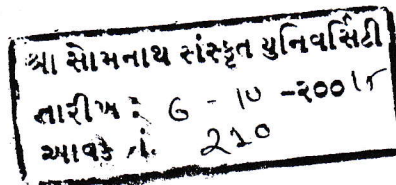 શ્રી સોમનાથ સંસ્કૃત યુનિવર્સિટી
તારીખ : 6 - 10 -૨૦૦
આવક નં. 210